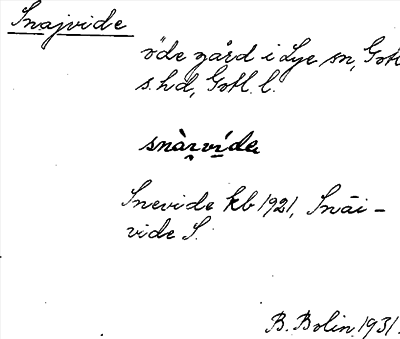 Snajvide
öde gård i Lye sn, Gotl.
s. hd, Gotl. l.
Snevide kb 1921, Snāi-
vide S.
B. Bolin 1931.